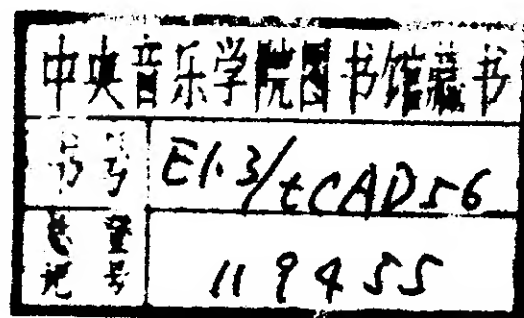 中央音乐学院图书馆藏书
书号 E1.3/tCAD56
总登记号 119455